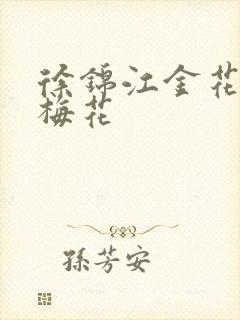 徐錦江金花
梅花
孫芳安